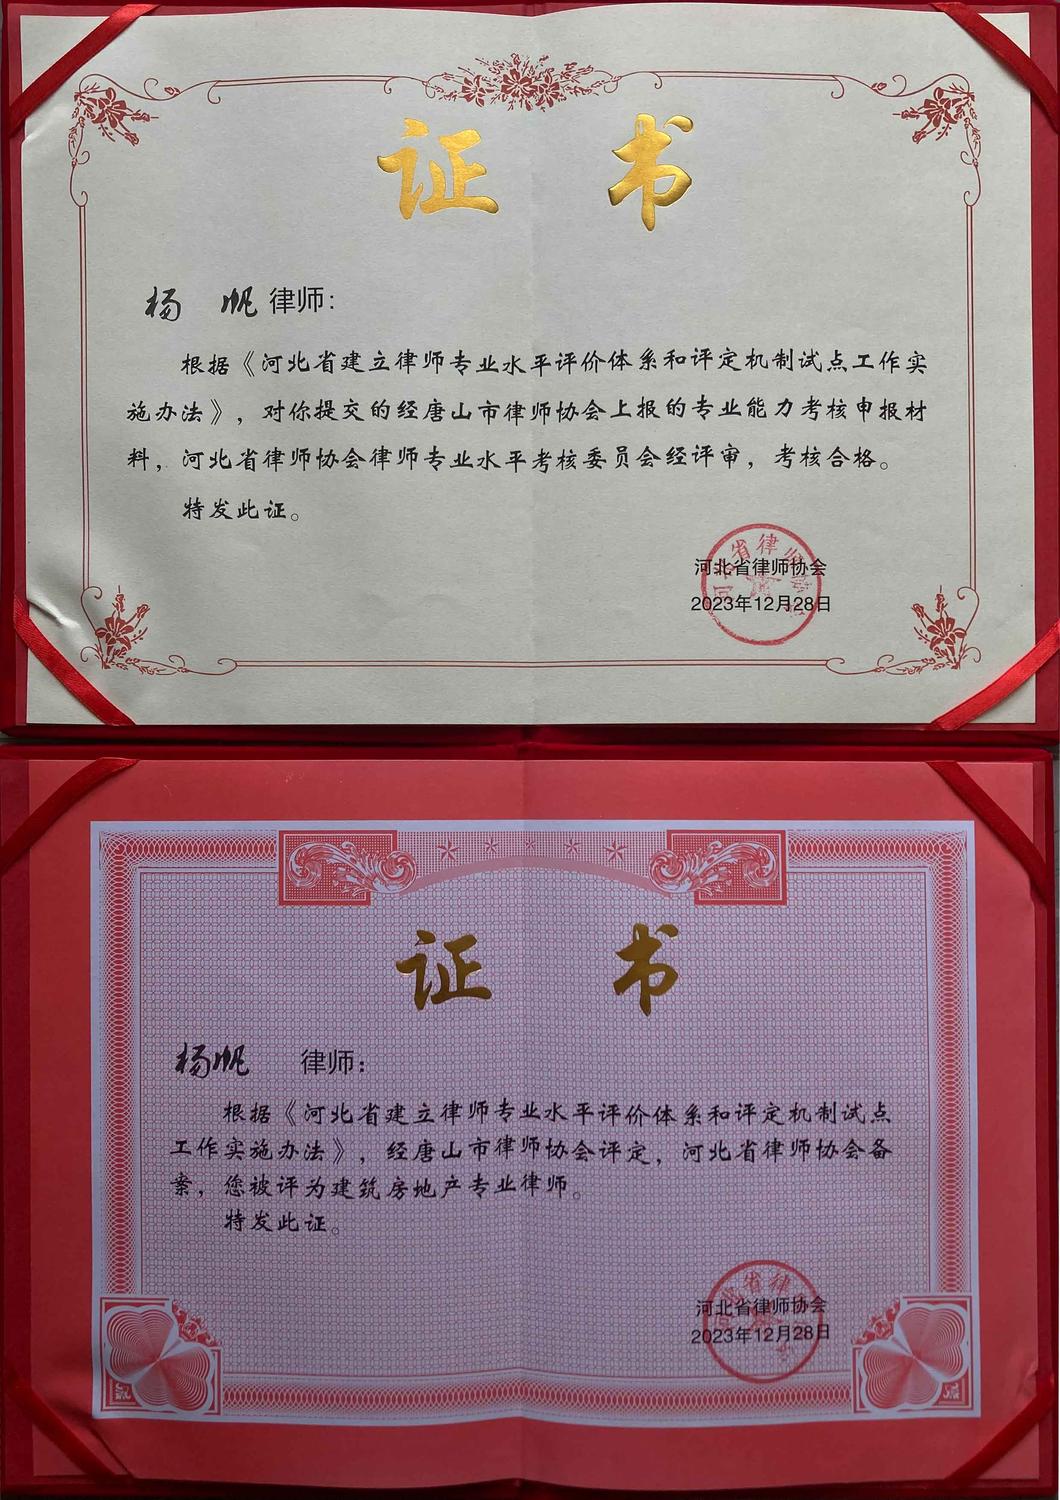 证 书
杨 帆 律师:
根据《河北省建立律师专业水平评价体系和评定机制试点工作实
施办法》，对你提交的经唐山市律师协会上报的专业能力考核申报材
料，河北省律师协会律师专业水平考核委员会经评审，考核合格。
特发此证。
河北省律师协会
2023年12月28日
证 书
杨帆 律师：
根据《河北省建立律师专业水平评价体系和评定机制试点
工作实施办法》，经唐山市律师协会评定，河北省律师协会备
案，您被评为建筑房地产专业律师。
特发此证。
河北省律师协会
2023年12月28日